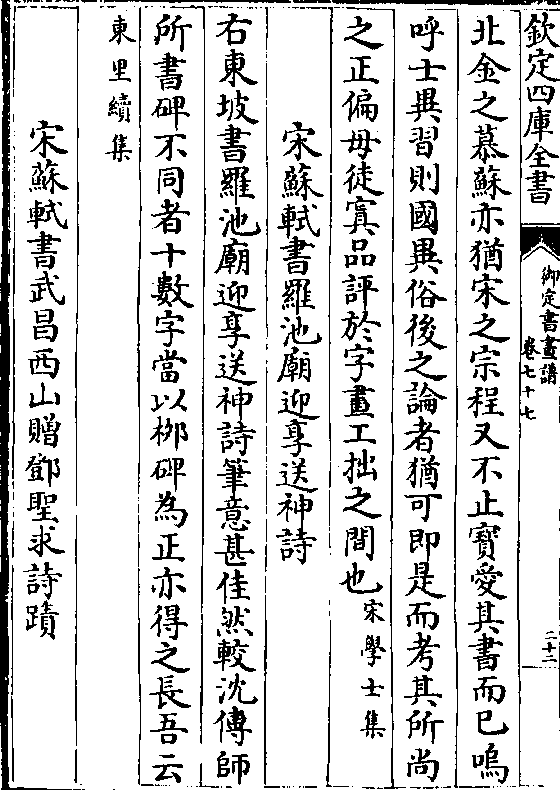 欽定四庫全書
御定書畫譜
卷七十七
二十二
北金之慕蘇亦猶宋之宗程又不止寶愛其書而已嗚
呼士異習則國異俗後之論者猶可即是而考其所尚
之正偏毋徒寘品評於字畫工拙之間也宋學士集
宋蘇軾書羅池廟迎享送神詩
右東坡書羅池廟迎享送神詩筆意甚佳然較沈傳師
所書碑不同者十數字當以栁碑為正亦得之長吾云
東里續集
宋蘇軾書武昌西山贈鄧聖求詩蹟